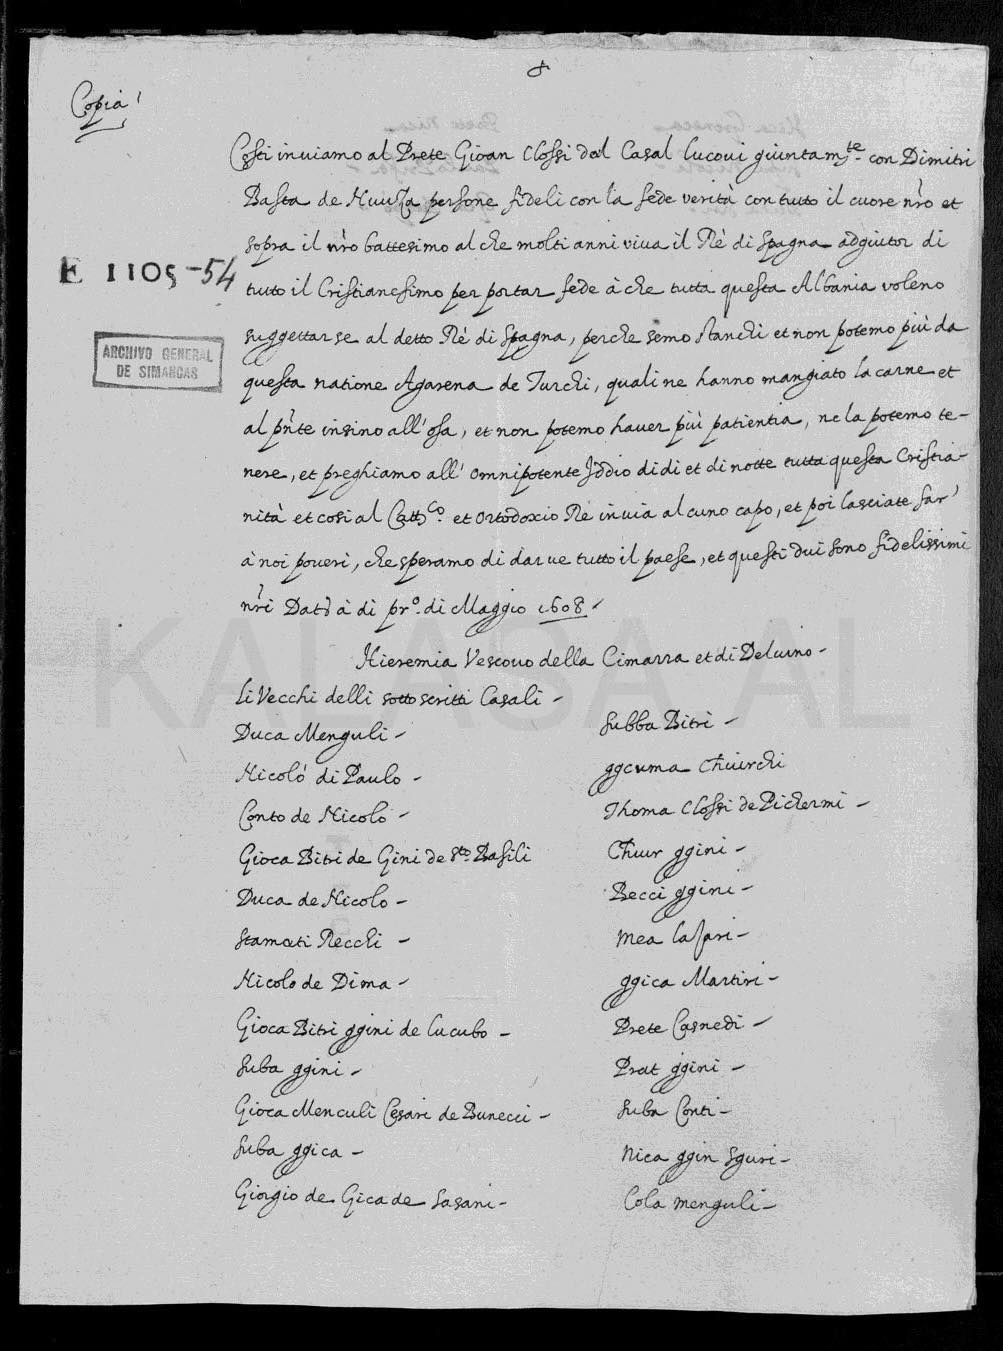 Copia
Costi inuiamo al Prete Gioan Clossi dal Casal Lucoui giuntam.te con Dimitri
Basta de Nuuiza persone fideli con la fede verità con tutto il cuore nro et
sopra il nro battesimo al che molti anni viua il Rè di Spagna adgiutor di
tutto il Cristianesimo per portar fede à che tutta questa Albania voleno
suggettarse al detto Rè di Spagna, perche semo stanchi et non potemo più da
questa natione Agarena de Turchi, quali ne hanno mangiato la carne et
al pnte insino all'ossa, et non potemo hauer più patientia, ne la potemo te-
nere, et preghiamo all'Omnipotente Iddio di dì et di notte tutta questa Cristia-
nità et cosi al Catt.co et Ortodoxio Rè inuia alcuno capo, et poi lasciate far
à noi poueri, che speramo di darue tutto il paese, et questi dui sono fidelissimi
nri Dat à di pr.o di Maggio 1608
Hieremia Vescouo della Cimarra et di Deluino -
E 1105-54
ARCHIVO GENERAL
DE SIMANCAS
Li Vecchi delli sotto scritti Casali -
Duca Menguli -
Nicolò di Paulo -
Conto de Nicolò -
Gioca Bitri de Gini de Sto Basili
Duca de Nicolo -
Stamati Recchi -
Nicolo de Dima -
Gioca Bitri ggini de Lucubo -
Suba ggini -
Gioca Menculi Cesari de Bunecci -
Suba ggica -
Giorgio de Gica de Sasani -
Subba Bitri -
ggcuma Chuirchi
Thoma Clossi de Pichermi -
Chuir ggini -
Becci ggini -
Mea Laspari -
ggica Martiri -
Prete Casnedi -
Prat ggini -
Suba Conti -
Nica ggin Sguri -
Cola menguli -
KALASA AI